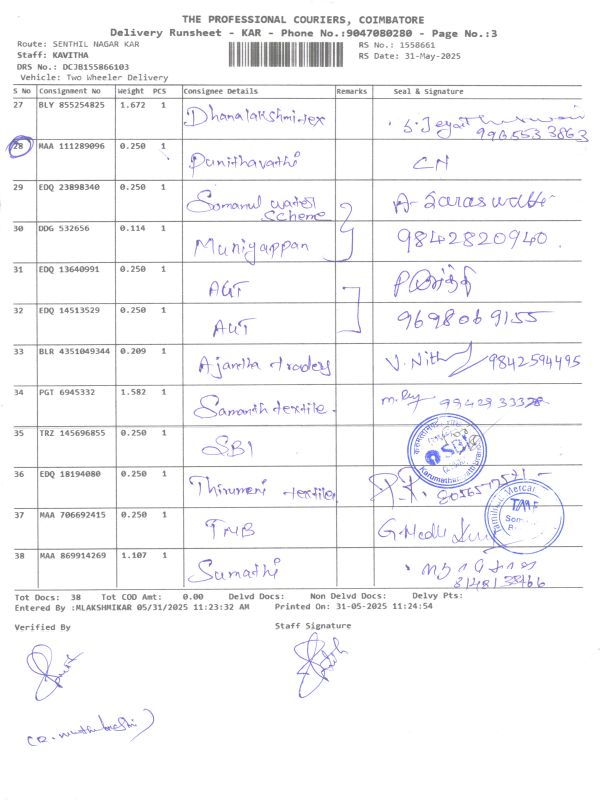 THE PROFESSIONAL COURIERS, COIMBATORE
Delivery Runsheet - KAR - Phone No.:9047080280 - Page No.:3
Route: SENTHIL NAGAR KAR
RS No.: 1558661
Staff: KAVITHA
RS Date: 31-May-2025
DRS No.: DCJB155866103
Vehicle: Two Wheeler Delivery
S No Consignment No Weight PCS Consignee Details Remarks Seal & Signature
27 BLY 855254825 1.672 1 Dhanalakshmi tex
9965533863
28 MAA 111289096 0.250 1 Punithavathi CN
29 EDQ 23898340 0.250 1 Somanur water scheme A. Saraswathi
30 DDG 532656 0.114 1 Muniyappan 9842820940
31 EDQ 13640991 0.250 1 AGT
32 EDQ 14513529 0.250 1 AGT 9698069155
33 BLR 4351049344 0.209 1 Ajantha traders V. Nith 9842594495
34 PGT 6945332 1.582 1 Samanth textile
35 TRZ 145696855 0.250 1 SBI SBI
36 EDQ 18194080 0.250 1 Thirumeni textile
37 MAA 706692415 0.250 1 TMB TMB
38 MAA 869914269 1.107 1 Sumathi
Tot Docs: 38 Tot COD Amt: 0.00 Delvd Docs: Non Delvd Docs: Delvy Pts:
Entered By :MLAKSHMIKAR 05/31/2025 11:23:32 AM Printed On: 31-05-2025 11:24:54
Verified By Staff Signature